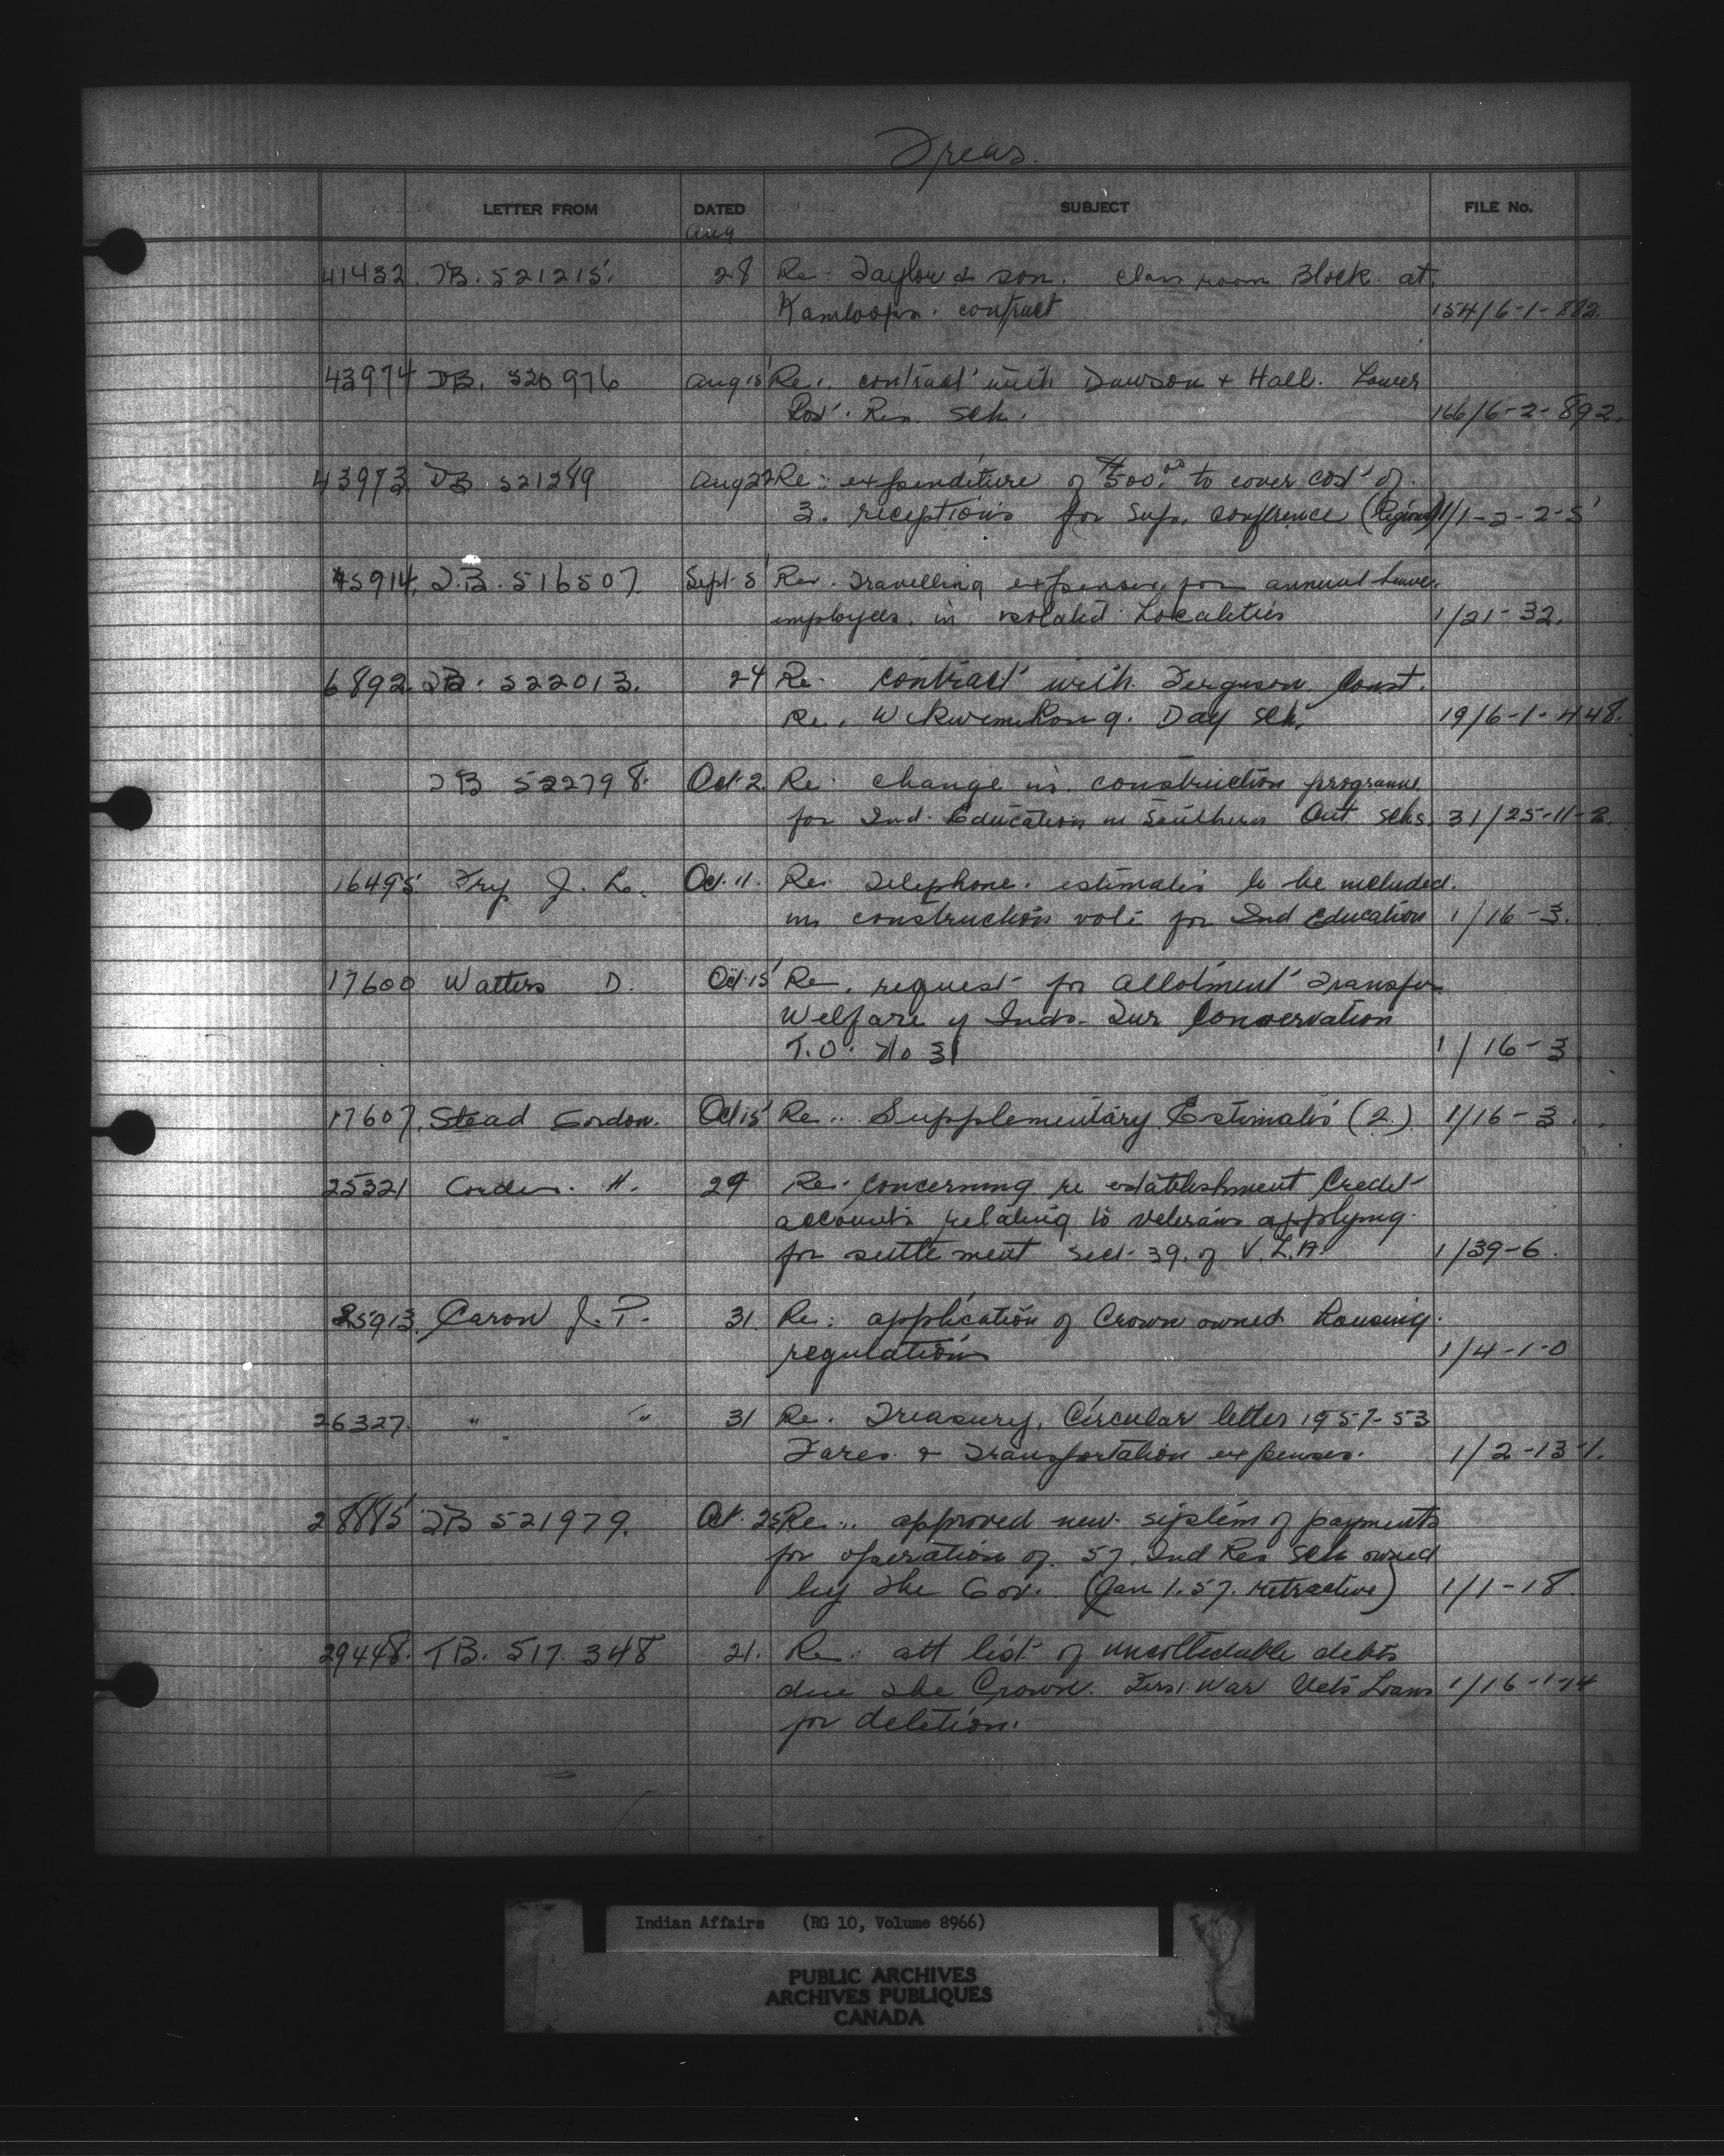 Treas.
LETTER FROM DATED SUBJECT FILE No.
Aug
41432. TB. 521215. 28 Re: Taylor & son. Class room Block at
Kamloops. contract 154/6-1-882.
43974 TB. 520976 Aug 15 Re: contract with Dawson + Hall. Lower
Post. Res. Sch. 166/6-2-892.
43973. TB 521289 Aug 22 Re: expenditure of $500.00 to cover cost of
3. receptions for Sup. Conference (Regional) 1/1-2-2-5
45914. T.B. 516507. Sept 5 Re. Travelling expenses for annual leave.
employees. in isolated Localities 1/21-32.
6892. TB. 522013. 24 Re. Contract with Ferguson Const.
Re. Wikwemikong. Day Sch. 19/6-1-448.
TB 522798. Oct. 2. Re change in construction programme
for Ind. Education in Southern Ont. Schs. 31/25-11-2.
16495 Fry J. L. Oct. 11. Re. Telephone. estimates to be included.
in construction vote for Ind Education 1/16-3.
17600 Watters D. Oct. 15 Re. request for allotment Transfer
Welfare of Inds. Fur Conservation
T.O. No 31 1/16-3
17607. Stead Gordon. Oct 15 Re.. Supplementary Estimates (2.) 1/16-3.
25321 H. 29 Re. Concerning re establishment Credit
accounts relating to veterans applying.
for settlement Sect. 39. of V.L.A. 1/39-6.
25913. Caron J. P. 31. Re: application of Crown owned Housing.
regulations 1/4-1-0
26327. " " 31 Re. Treasury. Circular letter 1957-53
Fares. & Transportation expenses. 1/2-13-1.
28885 TB 521979. Oct. 25 Re.. approved new system of payments
for operation of 57. Ind Res Sch owned
by the Gov. (Jan 1.57. retractive) 1/1-18.
29448. TB. 517 348 21. Re. att list of uncollectable debts
due the Crown. First War Vets Loans 1/16-1-14
for deletion.
Indian Affairs (RG 10, Volume 8966)
PUBLIC ARCHIVES
ARCHIVES PUBLIQUES
CANADA